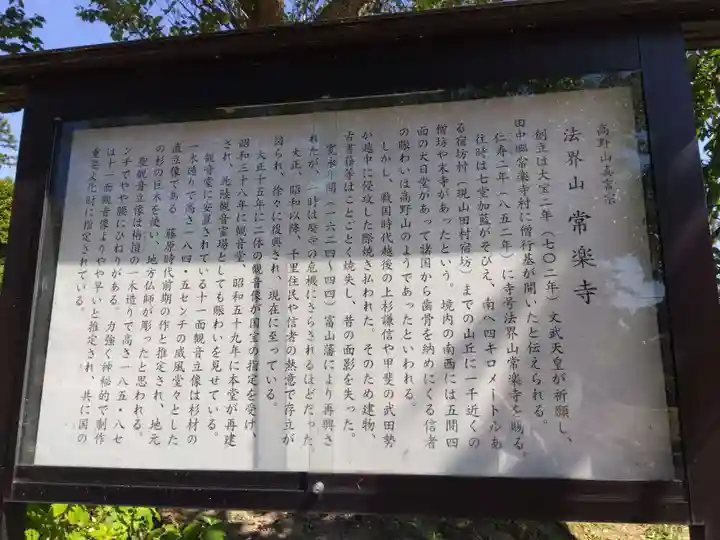 高野山真言宗
法界山 常楽寺
創立は大宝二年（七〇二年）文武天皇が祈願し、
田中郷常楽寺村に僧行基が開いたと伝えられる。
仁寿二年（八五二年）に寺号法界山常楽寺を賜る。
往時は七堂加藍がそびえ、南へ四キロメートルあ
る宿坊村（現山田村宿坊）までの山丘に一千近くの
僧坊や末寺があったという。境内の南西には五間四
面の大日堂があって諸国から歯骨を納めにくる信者
の賑わいは高野山のようであったといわれる。
しかし、戦国時代越後の上杉謙信や甲斐の武田勢
が越中に侵攻した際焼き払われた。そのため建物、
古書籍等はことごとく焼失し、昔の面影を失った。
寛永年間（一六二四〜四四）富山藩により再興さ
れたが、一時は廃寺の危機にさらされるほどだった。
大正、昭和以降、千里住民や信者の熱意で存立が
図られ、徐々に復興され、現在に至っている。
大正十五年に二体の観音像が国宝の指定を受け、
昭和三十八年に観音堂、昭和五十九年に本堂が再建
され、北陸観音霊場としても賑わいを見せている。
観音堂に安置されている十一面観音立像は杉材の
一木造りで高さ一八四・五センチの威風堂々とした
直立像である 藤原時代前期の作と推定され、地元
の杉の巨木を使い、地方仏師が彫ったと思われる。
聖観音立像は栴檀の一木造りで高さ一八五・八セ
ンチでやや腰にひねりがある。力強く神秘的で制作
は十一面観音像よりやや早いと推定され、共に国の
重要文化財に指定されている。